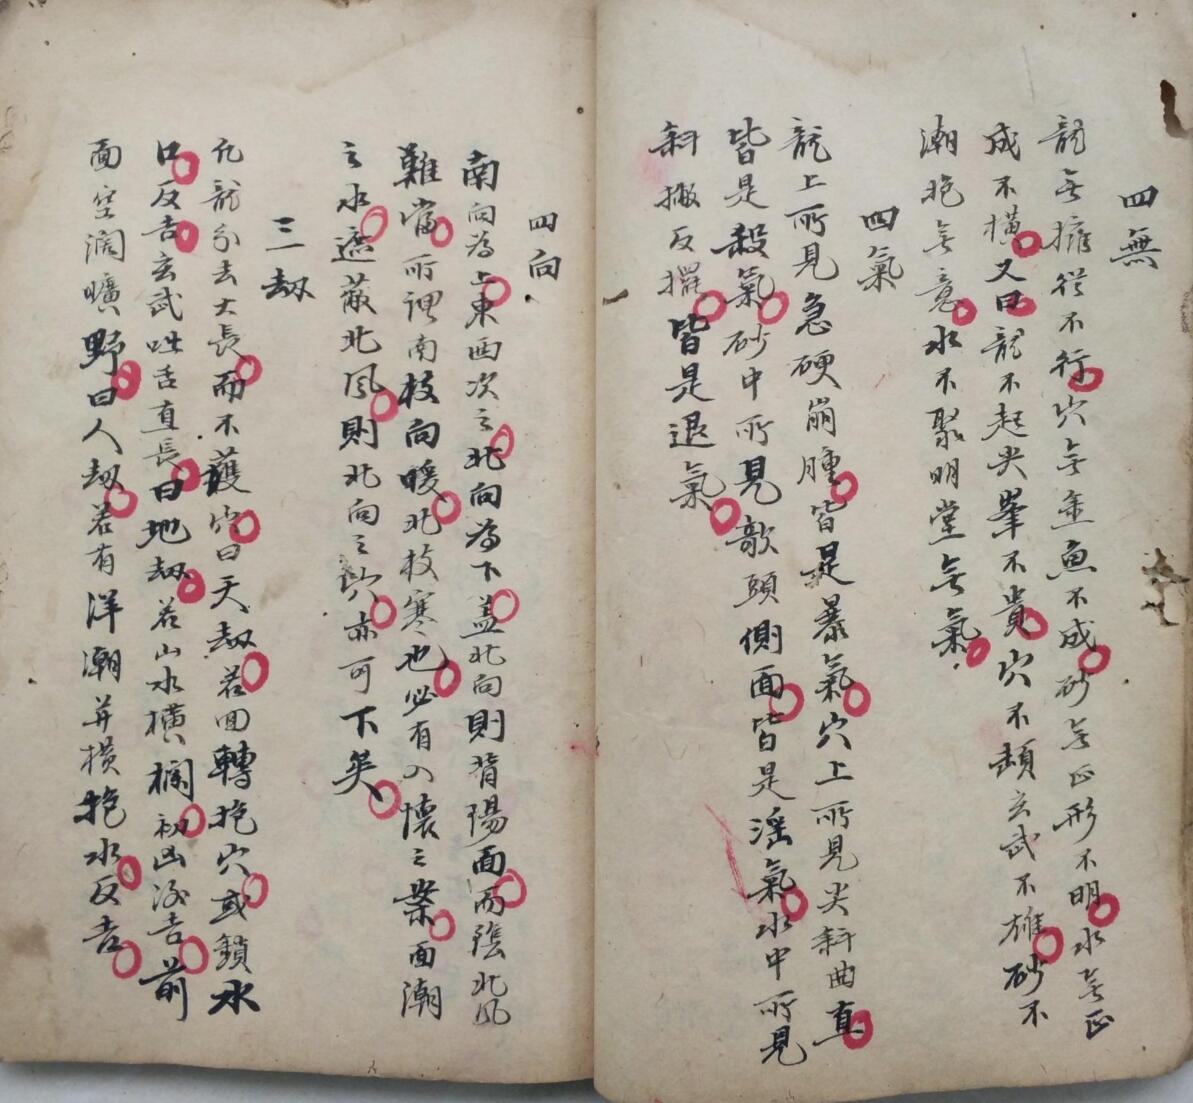 四無
龍无擁從不行穴无金魚不成砂无正形不明水无正
成不橫又曰龍不起尖峯不貴穴不頡玄武不雄砂不
潮抱无意水不聚明堂无氣
四氣
龍上所見急硬崩腫皆是暴氣穴上所見尖斜曲直
皆是殺氣砂中所見欹頭側面皆是淫氣水中所見
斜撇反擺皆是退氣
四向
南向為上東西次之北向為下蓋北向則背陽面而陰北风
難當所謂南枝向暖北枝寒也必有入懷之案面潮
之水遮蔽北风則北向之穴亦可下矣
三劫
凡龍分去大長而不護穴曰天劫若回轉抱穴或鎖水
口反吉玄武吐舌直長曰地劫若山水橫欄初凶後吉前
面空濶曠野曰人劫若有洋潮并横抱水反吉